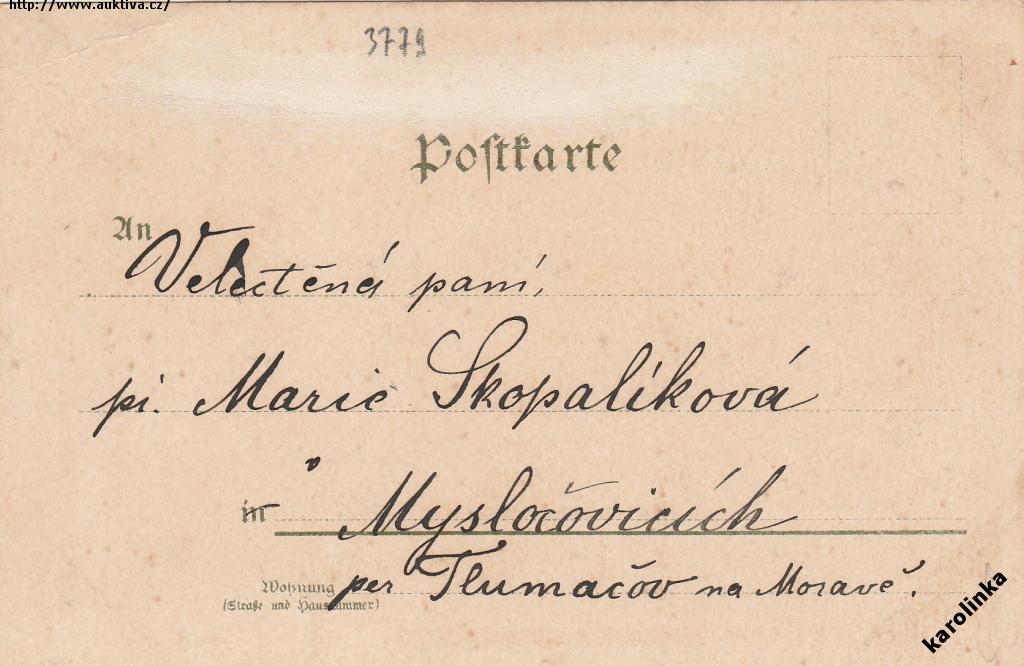 http://www.auktiva.cz/
3779
Postkarte
An
Velectěná paní,
pí. Marie Skopalíková
v
in Mysločovicích
Wohnung per Tlumačov na Moravě.
(Straße und Hausnummer)
karolinka